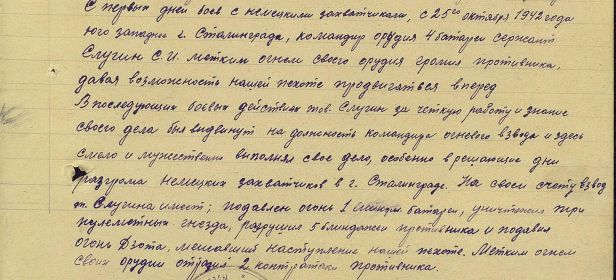 С первых дней боев с немецкими захватчиками, с 25го октября 1942 года
юго западнее г. Сталинграда, командир орудия 4 батареи сержант
Слугин С.И. метким огнем своего орудия громил противника,
давая возможность нашей пехоте продвигаться вперед
В последующих боевых действиях тов. Слугин за четкую работу и знание
своего дела был выдвинут на должность командира огневого взвода и здесь
смело и мужественно выполнял свое дело, особенно в решающие дни
разгрома немецких захватчиков в г. Сталинграде. На своем счету взвод
т. Слугина имеет; подавлен огонь 1 батареи, уничтожил три
пулеметных гнезда, разрушил 5 блиндажей противника и подавил
огонь Дзота, мешавший наступлению нашей пехоте. Метким огнем
своих орудий отразил 2 контратаки противника.